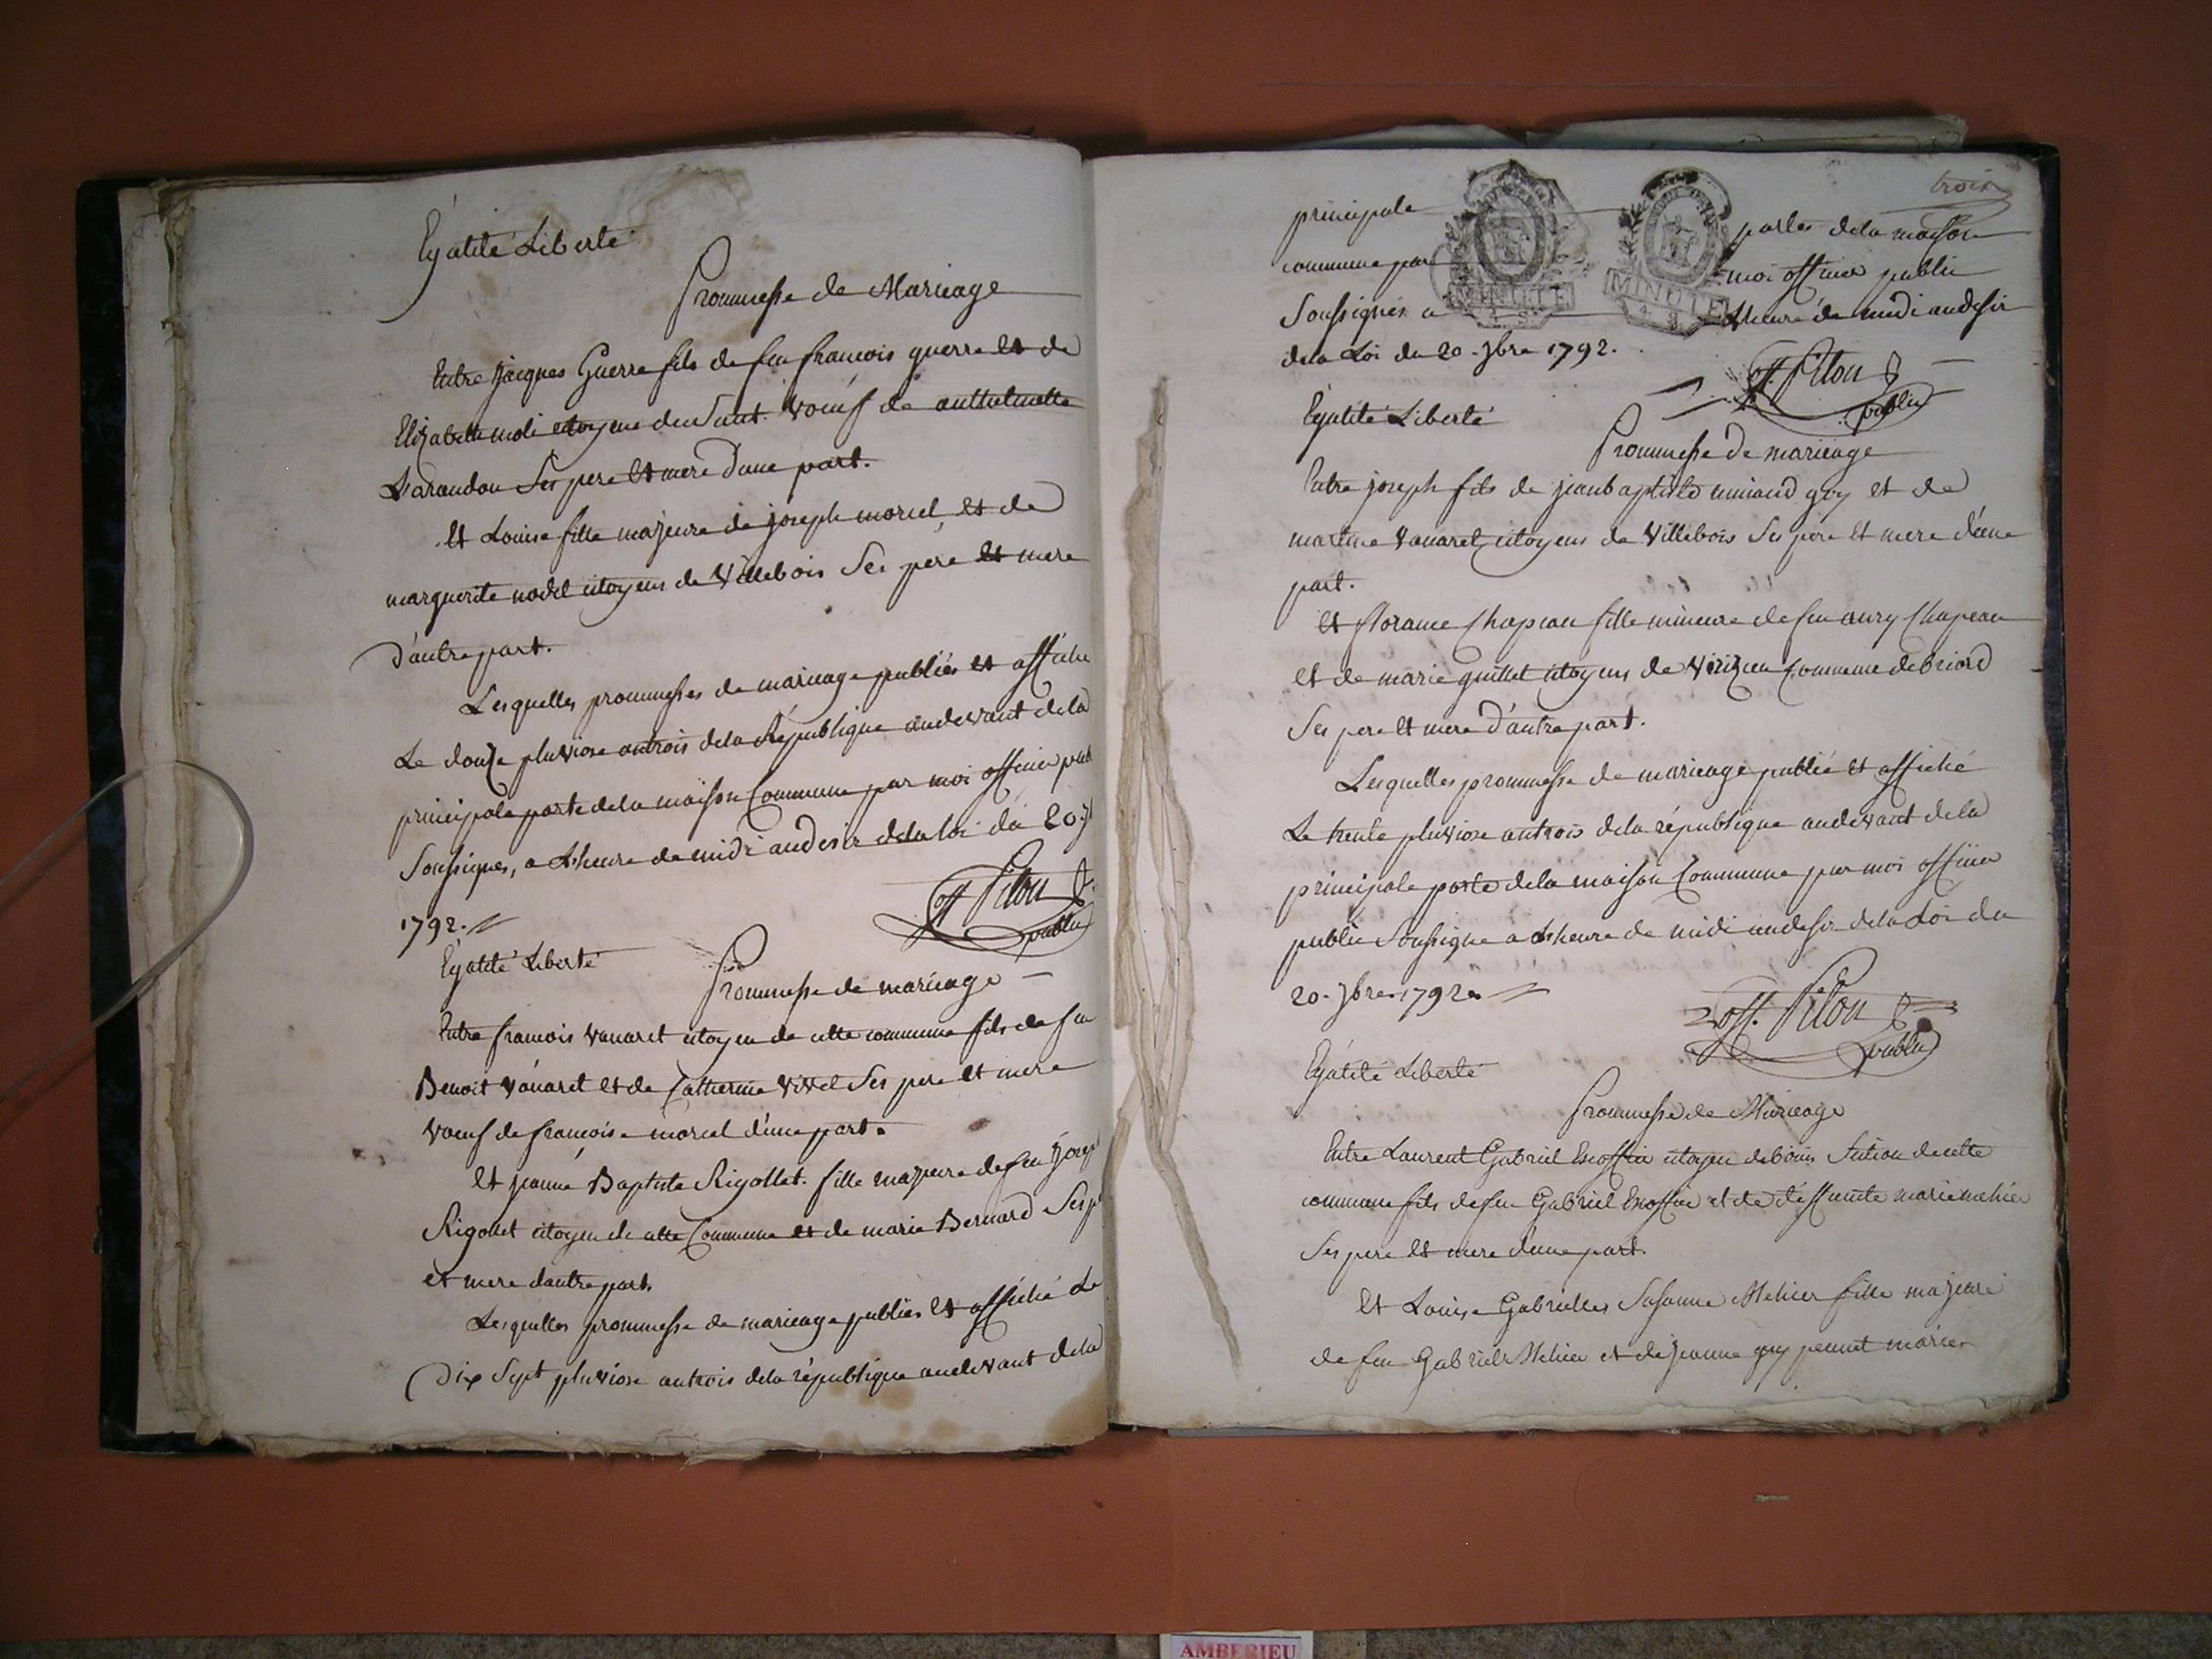 Egalité Liberté
Prommesse de Mariage
Entre jacques Guerre fils de feu francois guerre et de
Elizabette moli citoyens du Saut. voeuf de
Larandon Ses pere et mere d'une part.
Et Louise fille majeure de joseph morel, et de
marguerite nodet citoyens de Villebois Ses pere et mere
d'autre part.
Lesquelles prommesses de mariage publiés et affiché
Le douze pluviose an trois dela République audevant dela
principale porte dela maison Commune par moi officier publ
Soussignes, a Lheure de midi audesir dela loi du 20. 7
1792.
off Pilon
public
Egalité Liberté
Prommesse de mariage
Entre francois vanaret citoyen de cette commune fils de feu
Benoit vanaret et de Catherine vittel Ses pere et mere
voeuf de francoise morel d'une part.
Et jeanne Baptiste Rigollet. fille majeure de feu joseph
Rigollet citoyen de cette Commune et de marie Bernard Ses p
et mere dautre part.
Lesquelles prommesse de mariage publiés et affiché Le
Dix Sept pluviose an trois dela république audevant dela
trois
principale portes dela maison
commune par moi officier public
MINUTE MINUTE
Soussignés a Lheure de midi audesir
dela Loi du 20. 7bre 1792.
off. Pilon
public
Egalité Liberté
Prommesse de mariage
Entre joseph fils de jean baptiste minand goy et de
martine vanaret citoyens de Villebois Ses pere et mere d'une
part.
et florance Chapeau fille mineure de feu anry Chapeau
et de marie quillet citoyens de Vérizieu Commune de briord
Ses pere et mere d'autre part.
Lesquelles prommesse de mariage publié et affiché
Le trente pluviose an trois dela république audevant dela
principale porte dela maison Commune par moi officier
public Soussigne a Lheure de midi audesir dela Loi du
20. 7bre 1792.
off. Pilon
public
Egalité Liberté
Prommesse de Mariage
Entre Laurent Gabriel Escoffier citoyen de bouis Section de cette
commune fils de feu Gabriel Escoffier et de deffunte marie mehier
Ses pere et mere d'une part.
Et Louise Gabrielles Susanne Mehier fille majeure
de feu Gabriels Mehier et de jeanne goy pennet mariés
AMBERIEU